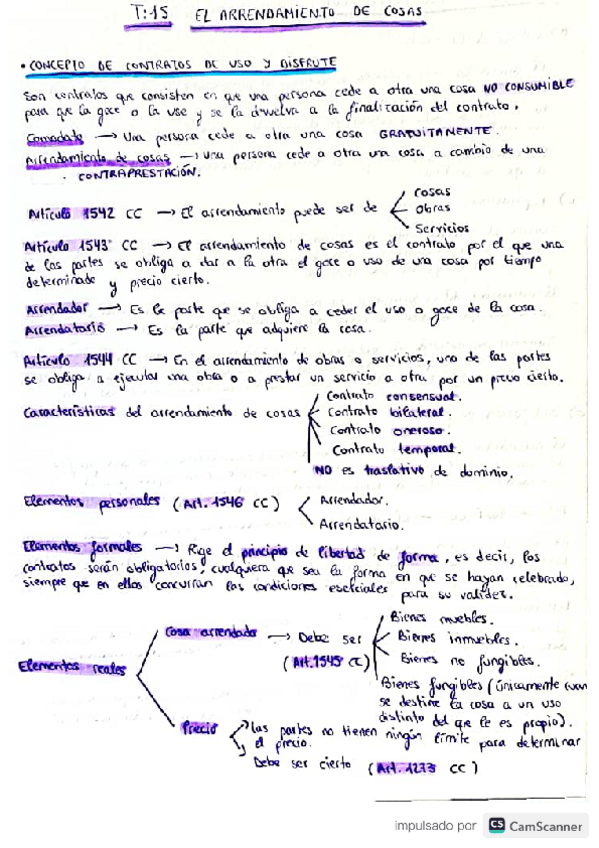 T:15 EL ARRENDAMIENTO DE COSAS
• CONCEPTO DE CONTRATOS DE USO Y DISFRUTE
Son contratos que consisten en que una persona cede a otra una cosa NO CONSUMIBLE
para que la goce o la use y se la devuelva a la finalización del contrato.
Comodato → Una persona cede a otra una cosa GRATUITAMENTE.
Arrendamiento de cosas → una persona cede a otra una cosa a cambio de una
CONTRAPRESTACIÓN.
Artículo 1542 CC → El arrendamiento puede ser de
Cosas
Obras
Servicios
Artículo 1543 CC → El arrendamiento de cosas es el contrato por el que una
de las partes se obliga a dar a la otra el goce o uso de una cosa por tiempo
determinado y precio cierto.
Arrendador → Es la parte que se obliga a ceder el uso o goce de la cosa.
Arrendatario → Es la parte que adquiere la cosa.
Artículo 1544 CC → En el arrendamiento de obras o servicios, una de las partes
se obliga a ejecutar una obra o a prestar un servicio a otra por un precio cierto.
Características del arrendamiento de cosas
Contrato consensual.
Contrato bilateral.
Contrato oneroso.
Contrato temporal.
NO es traslativo de dominio.
Elementos personales (Art. 1546 CC)
Arrendador.
Arrendatario.
Elementos formales → Rige el principio de libertad de forma, es decir, los
contratos serán obligatorios, cualquiera que sea la forma en que se hayan celebrado,
siempre que en ellos concurran las condiciones esenciales para su validez.
Elementos reales
Cosa arrendada → Debe ser
(Art. 1545 CC)
Bienes muebles.
Bienes inmuebles.
Bienes no fungibles.
Bienes fungibles (únicamente
se destine la cosa a un uso
distinto del que le es propio).
Precio
las partes no tienen ningún límite para determinar
el precio.
Debe ser cierto (Art. 1273 CC)
impulsado por CS CamScanner